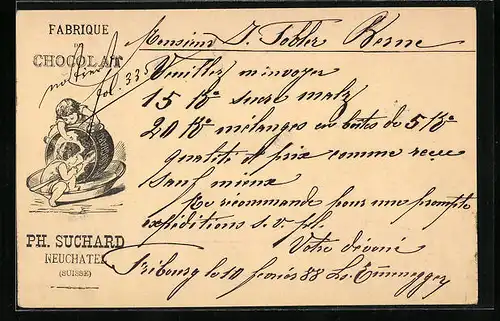 FABRIQUE
CHOCOLAT
fol. 335
Monsieur J. Tobler Berne
Veuillez m'envoyer
15 Ko sucre malz
20 Ko mélanges en boites de 5 Ko
qualité et prix comme reçu
sauf mieux
Me recommande pour une prompte
expéditions s. v. pl.
Votre dévoué
Fribourg le 10 88
PH. SUCHARD
NEUCHATEL
(SUISSE)